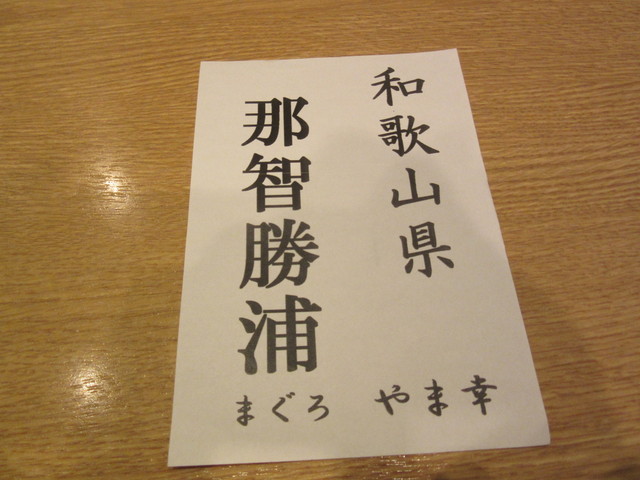 和歌山県
那智勝浦
まぐろ やま幸